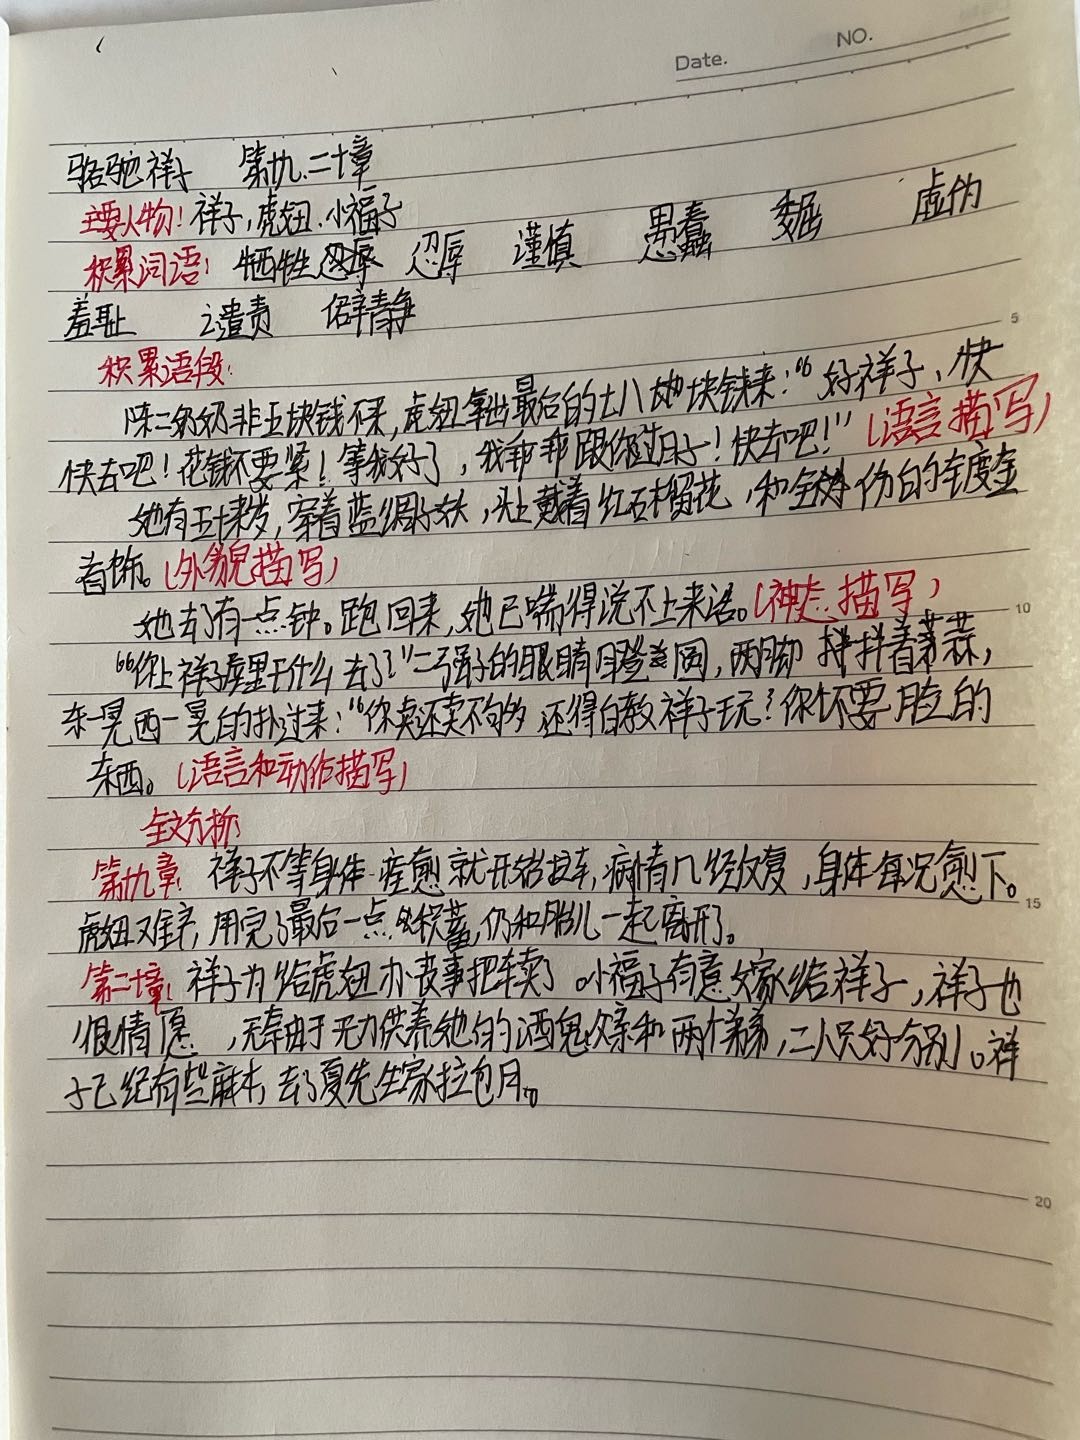 Date.
NO.
骆驼祥子 第十九.二十章
主要人物：祥子，虎妞.小福子
积累词语：牺牲 忍辱 谨慎 愚蠢 委屈 虚伪
羞耻 谴责 僻静
积累语段：
陈二奶奶非五块钱不来，虎妞拿出最后的七八块钱来：“好祥子，快
快去吧！花钱不要紧！等我好了，我乖乖跟你过日子！快去吧！”（语言描写）
她有五十来岁，穿着蓝绸子袄，头上戴着红石榴花，和全份的镀金
首饰。（外貌描写）
她去了有一点钟。跑回来，她已喘得说不上来话。（神态描写）
“你上祥子屋里干什么去了？”二强子的眼睛瞪圆，两脚拌着蒜，
东一晃西一晃的扑过来：“你卖还卖不够 还得白教祥子玩？你个不要脸的
东西。（语言和动作描写）
全文分析
第十九章：祥子不等身体痊愈就开始拉车，病情几经反复，身体每况愈下。
虎妞难产，用完了最后一点积蓄，仍和胎儿一起离开了。
第二十章：祥子为给虎妞办丧事把车卖了。小福子有意嫁给祥子，祥子也
很情愿，无奈由于无力供养她的酒鬼父亲和两个弟弟，二人只好分别。祥
子已经有些麻木，去了夏先生家拉包月。
5
10
15
20